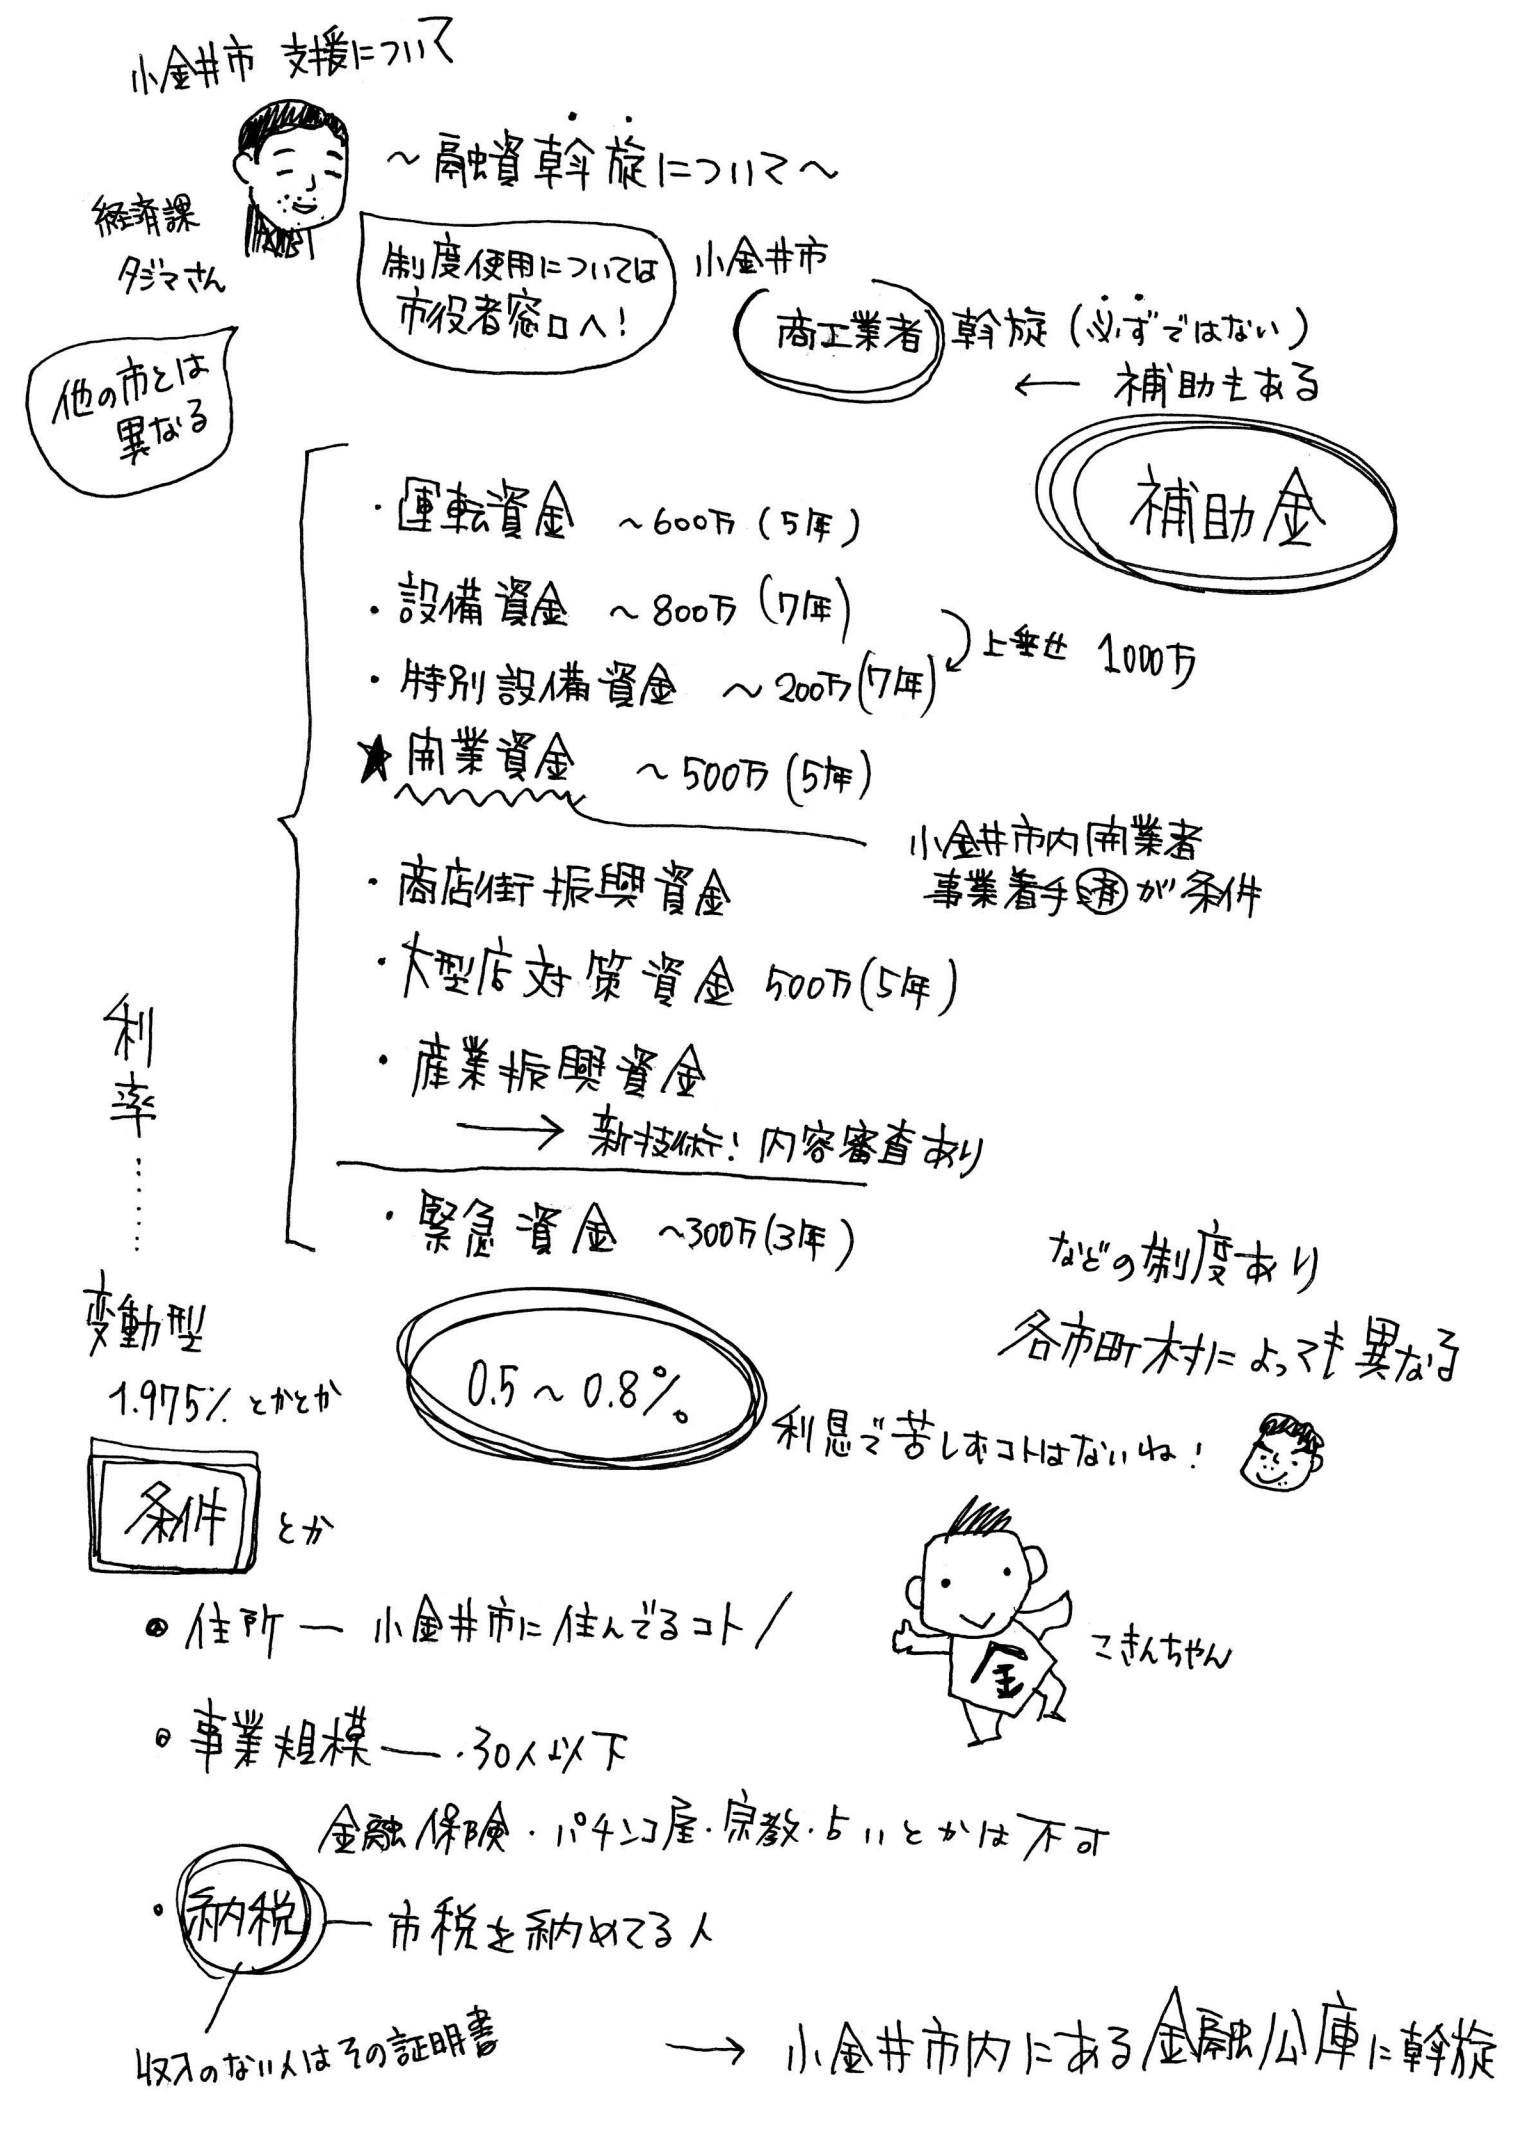 小金井市 支援について
～融資斡旋について～
経済課
タジマさん
制度使用については
市役者窓口へ!
他の市とは
異なる
小金井市
商工業者 斡旋 (必ずではない)
← 補助もある
補助金
・運転資金 ～600万 (5年)
・設備資金 ～800万 (7年)
・特別設備資金 ～200万 (7年)
上乗せ 1000万
★開業資金 ～500万 (5年)
小金井市内開業者
事業着手済が条件
・商店街振興資金
・大型店対策資金 500万 (5年)
・産業振興資金
→ 新技術! 内容審査あり
・緊急資金 ～300万 (3年)
などの制度あり
各市町村によっても異なる
利率……
変動型
1.975%とかとか
0.5～0.8%。
利息で苦しむコトはないね!
条件 とか
・住所 ― 小金井市に住んでるコト/
こきんちゃん
金
・事業規模 ― ・30人以下
金融保険・パチンコ屋・宗教・占いとかは不可
・納税 ― 市税を納めてる人
収入のない人はその証明書
→ 小金井市内にある金融公庫に斡旋